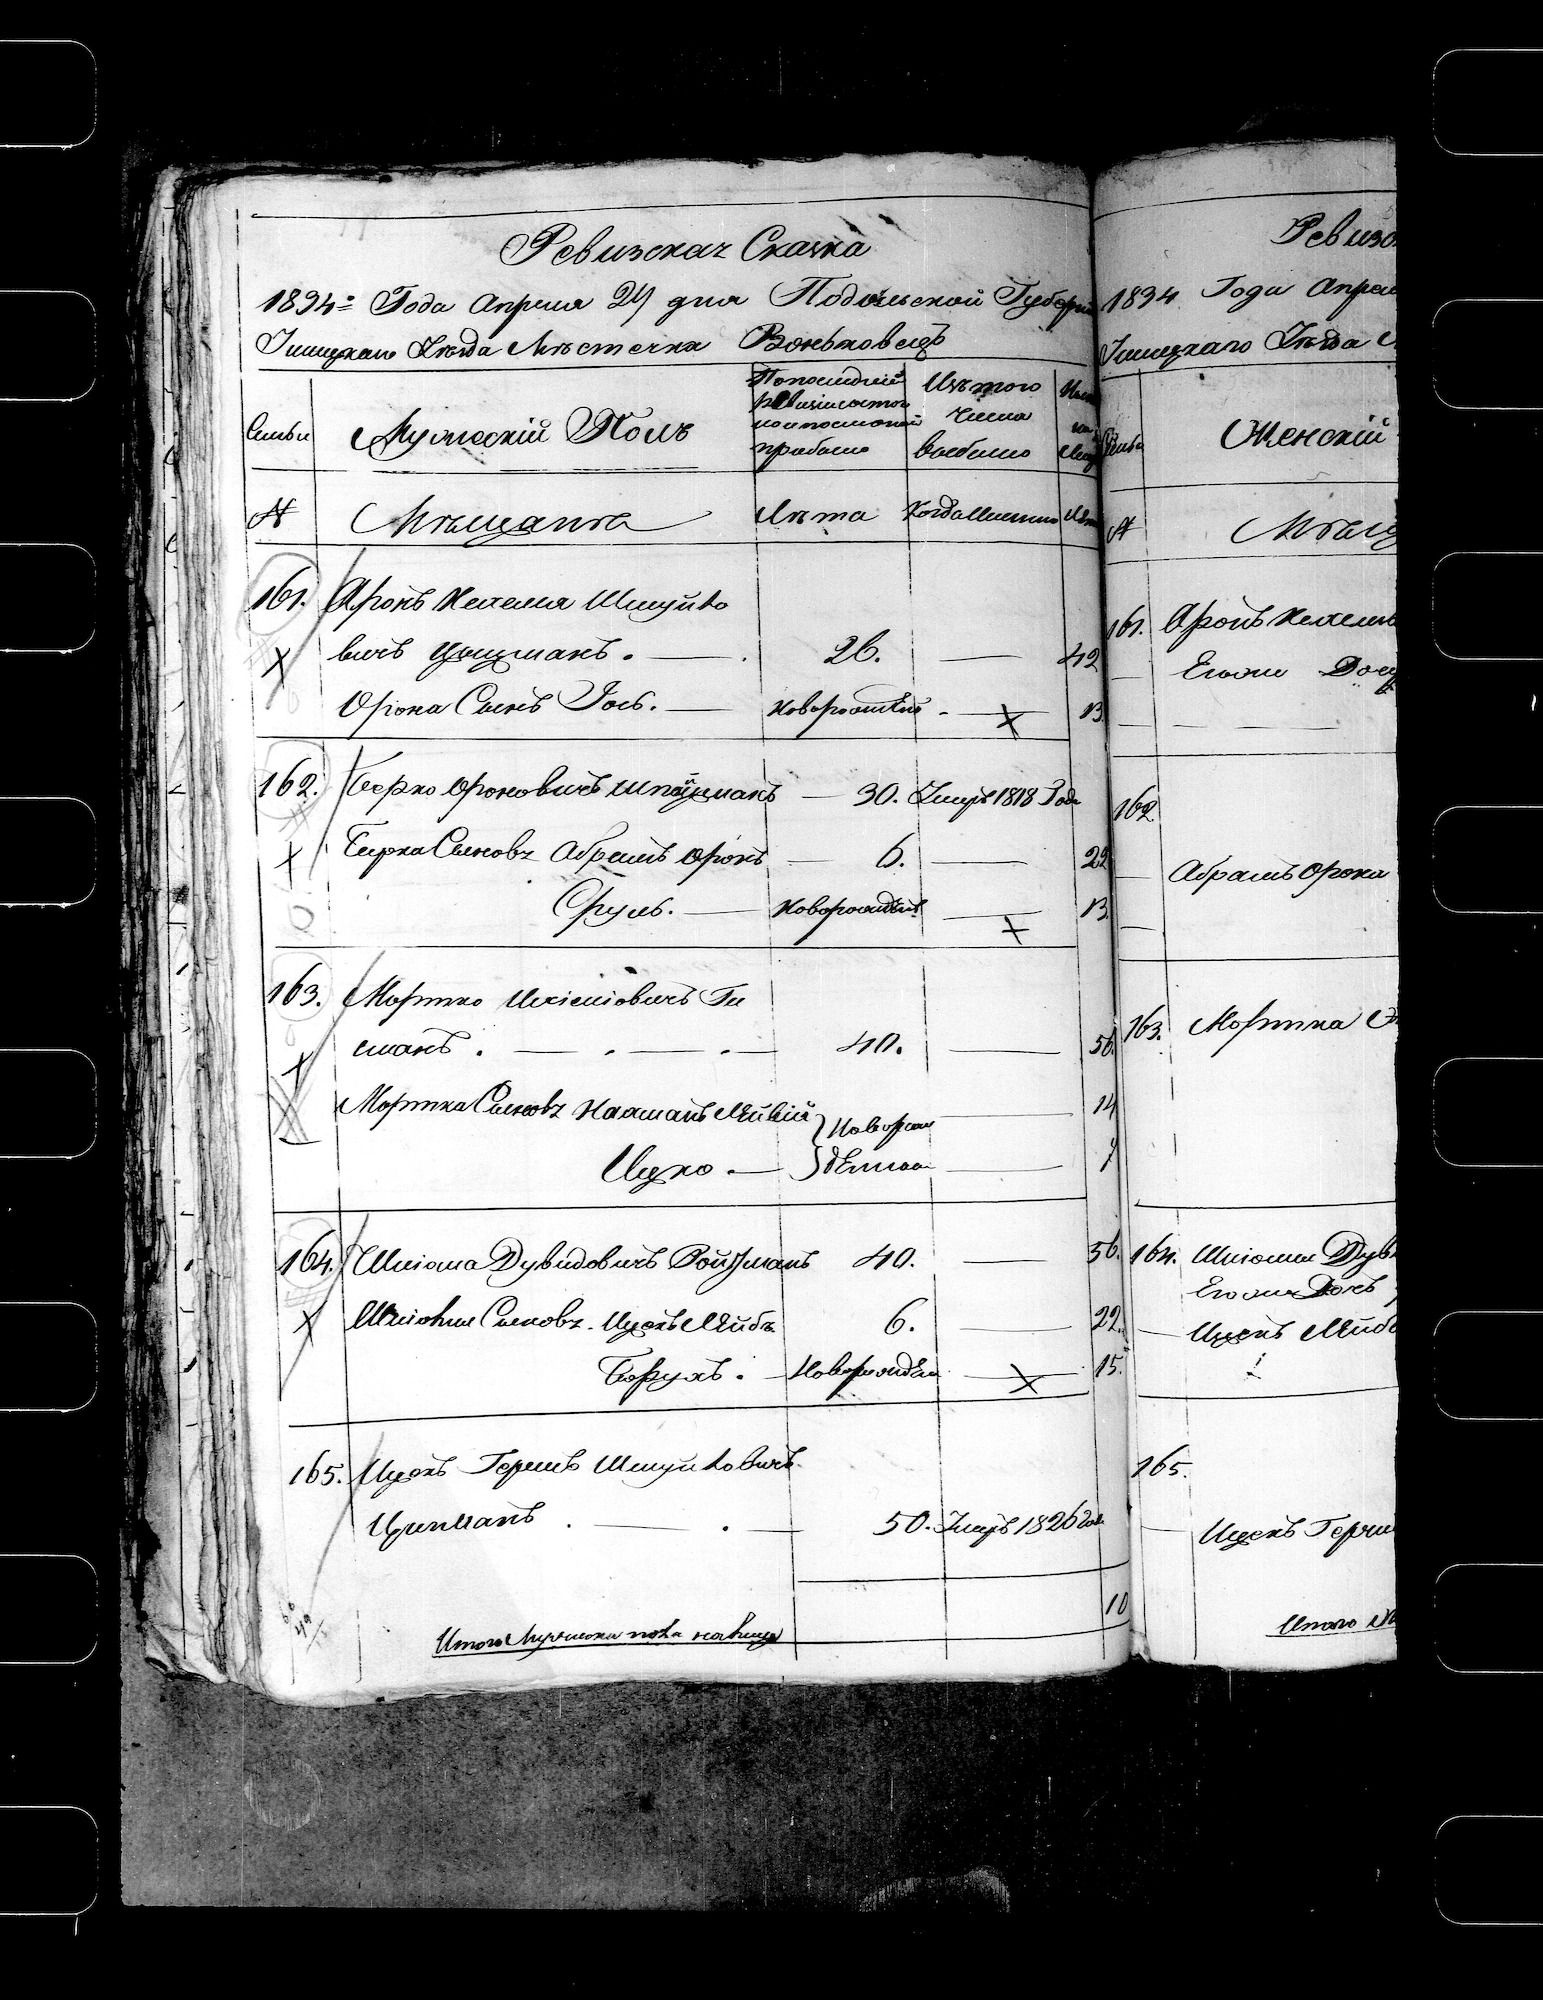 Ревизская Сказка
1834 = Года Апреля 24 дня Подольской Губерн
Ушицкаго Уезда Местечка Воньковецъ
Семьи
Мужескій Полъ
По последней
ревизіи состояло
и после оной
прибыло
Изъ того
числа
выбыло
№
Мѣщанѣ
Лѣта
Когда Именно
Лѣта
161. Аронъ Нехемія Шмуйло
вичъ Цицманъ. — 26. — 42
Орона Сынъ Іось. — Новорожден — 13
162. Берко Ороновичъ — 30. Умеръ 1818 Года
Берка Сыновъ Абрамъ Оронъ — 6. — 22
Сруль. — Новорожденъ — 13.
163. Мортко
сманъ. — . — . — 40. — 56.
Мортка Сыновъ Нахманъ Лейвій — 14
Новорож
Ицко. — денные — 7
164. Шліома Дувидовичъ Ройзманъ 40. — 56.
Шліомы Сыновъ. Ицекъ Лейбъ 6. — 22.
Борухъ. — Новорожден — 15.
165. Ицекъ Гершъ Шмуйловичъ
Цицманъ . — . — 50. Умеръ 1826 Года
Итого Мужеска пола налицо
10
Ревизс
1834 Года Апрел
Ушицкаго Уезда М
Семьи
Женскій
№
Мѣщ
161. Аронъ Нехемі
Его жена
162.
Абрамъ Орона
163. Мортка
164. Шліомы Дув
Его жены Дочь
Ицекъ Лейб
165.
Ицекъ Герш
Итого